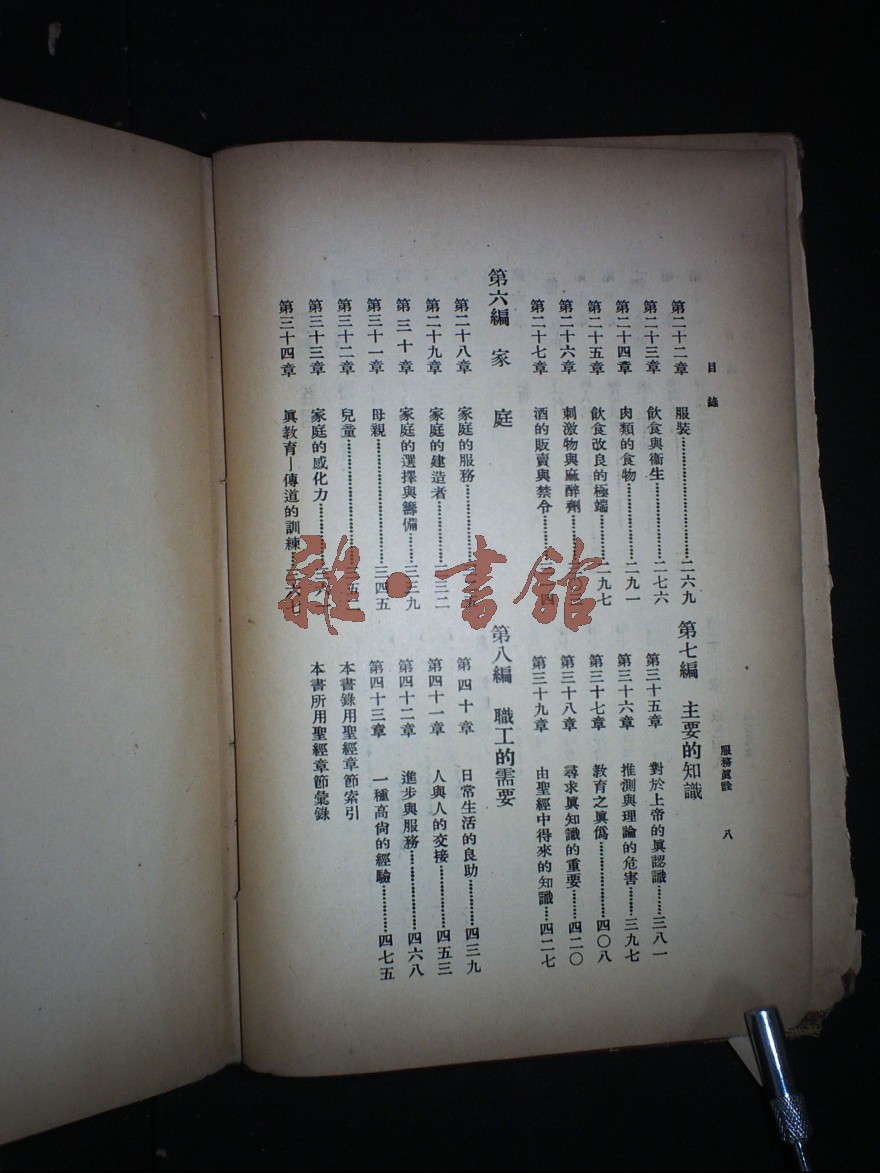 目錄
第二十二章 服裝……二六九
第二十三章 飲食與衞生……二七六
第二十四章 肉類的食物……二九一
第二十五章 飲食改良的極端……二九七
第二十六章 刺激物與麻醉劑
第二十七章 酒的販賣與禁令……四
第六編 家庭
第二十八章 家庭的服務……五
第二十九章 家庭的建造者……三三二
第三十章 家庭的選擇與籌備……三三九
第三十一章 母親……三四五
第三十二章 兒童……三五二
第三十三章 家庭的感化力……三六一
第三十四章 眞教育—傳道的訓練……三六七
服務眞詮 八
第七編 主要的知識
第三十五章 對於上帝的眞認識……三八一
第三十六章 推測與理論的危害……三九七
第三十七章 教育之眞僞……四〇八
第三十八章 尋求眞知識的重要……四二〇
第三十九章 由聖經中得來的知識……四二七
第八編 職工的需要
第四十章 日常生活的良助……四三九
第四十一章 人與人的交接……四五三
第四十二章 進步與服務……四六八
第四十三章 一種高尙的經驗……四七五
本書錄用聖經章節索引
本書所用聖經章節彙錄
雜·書館